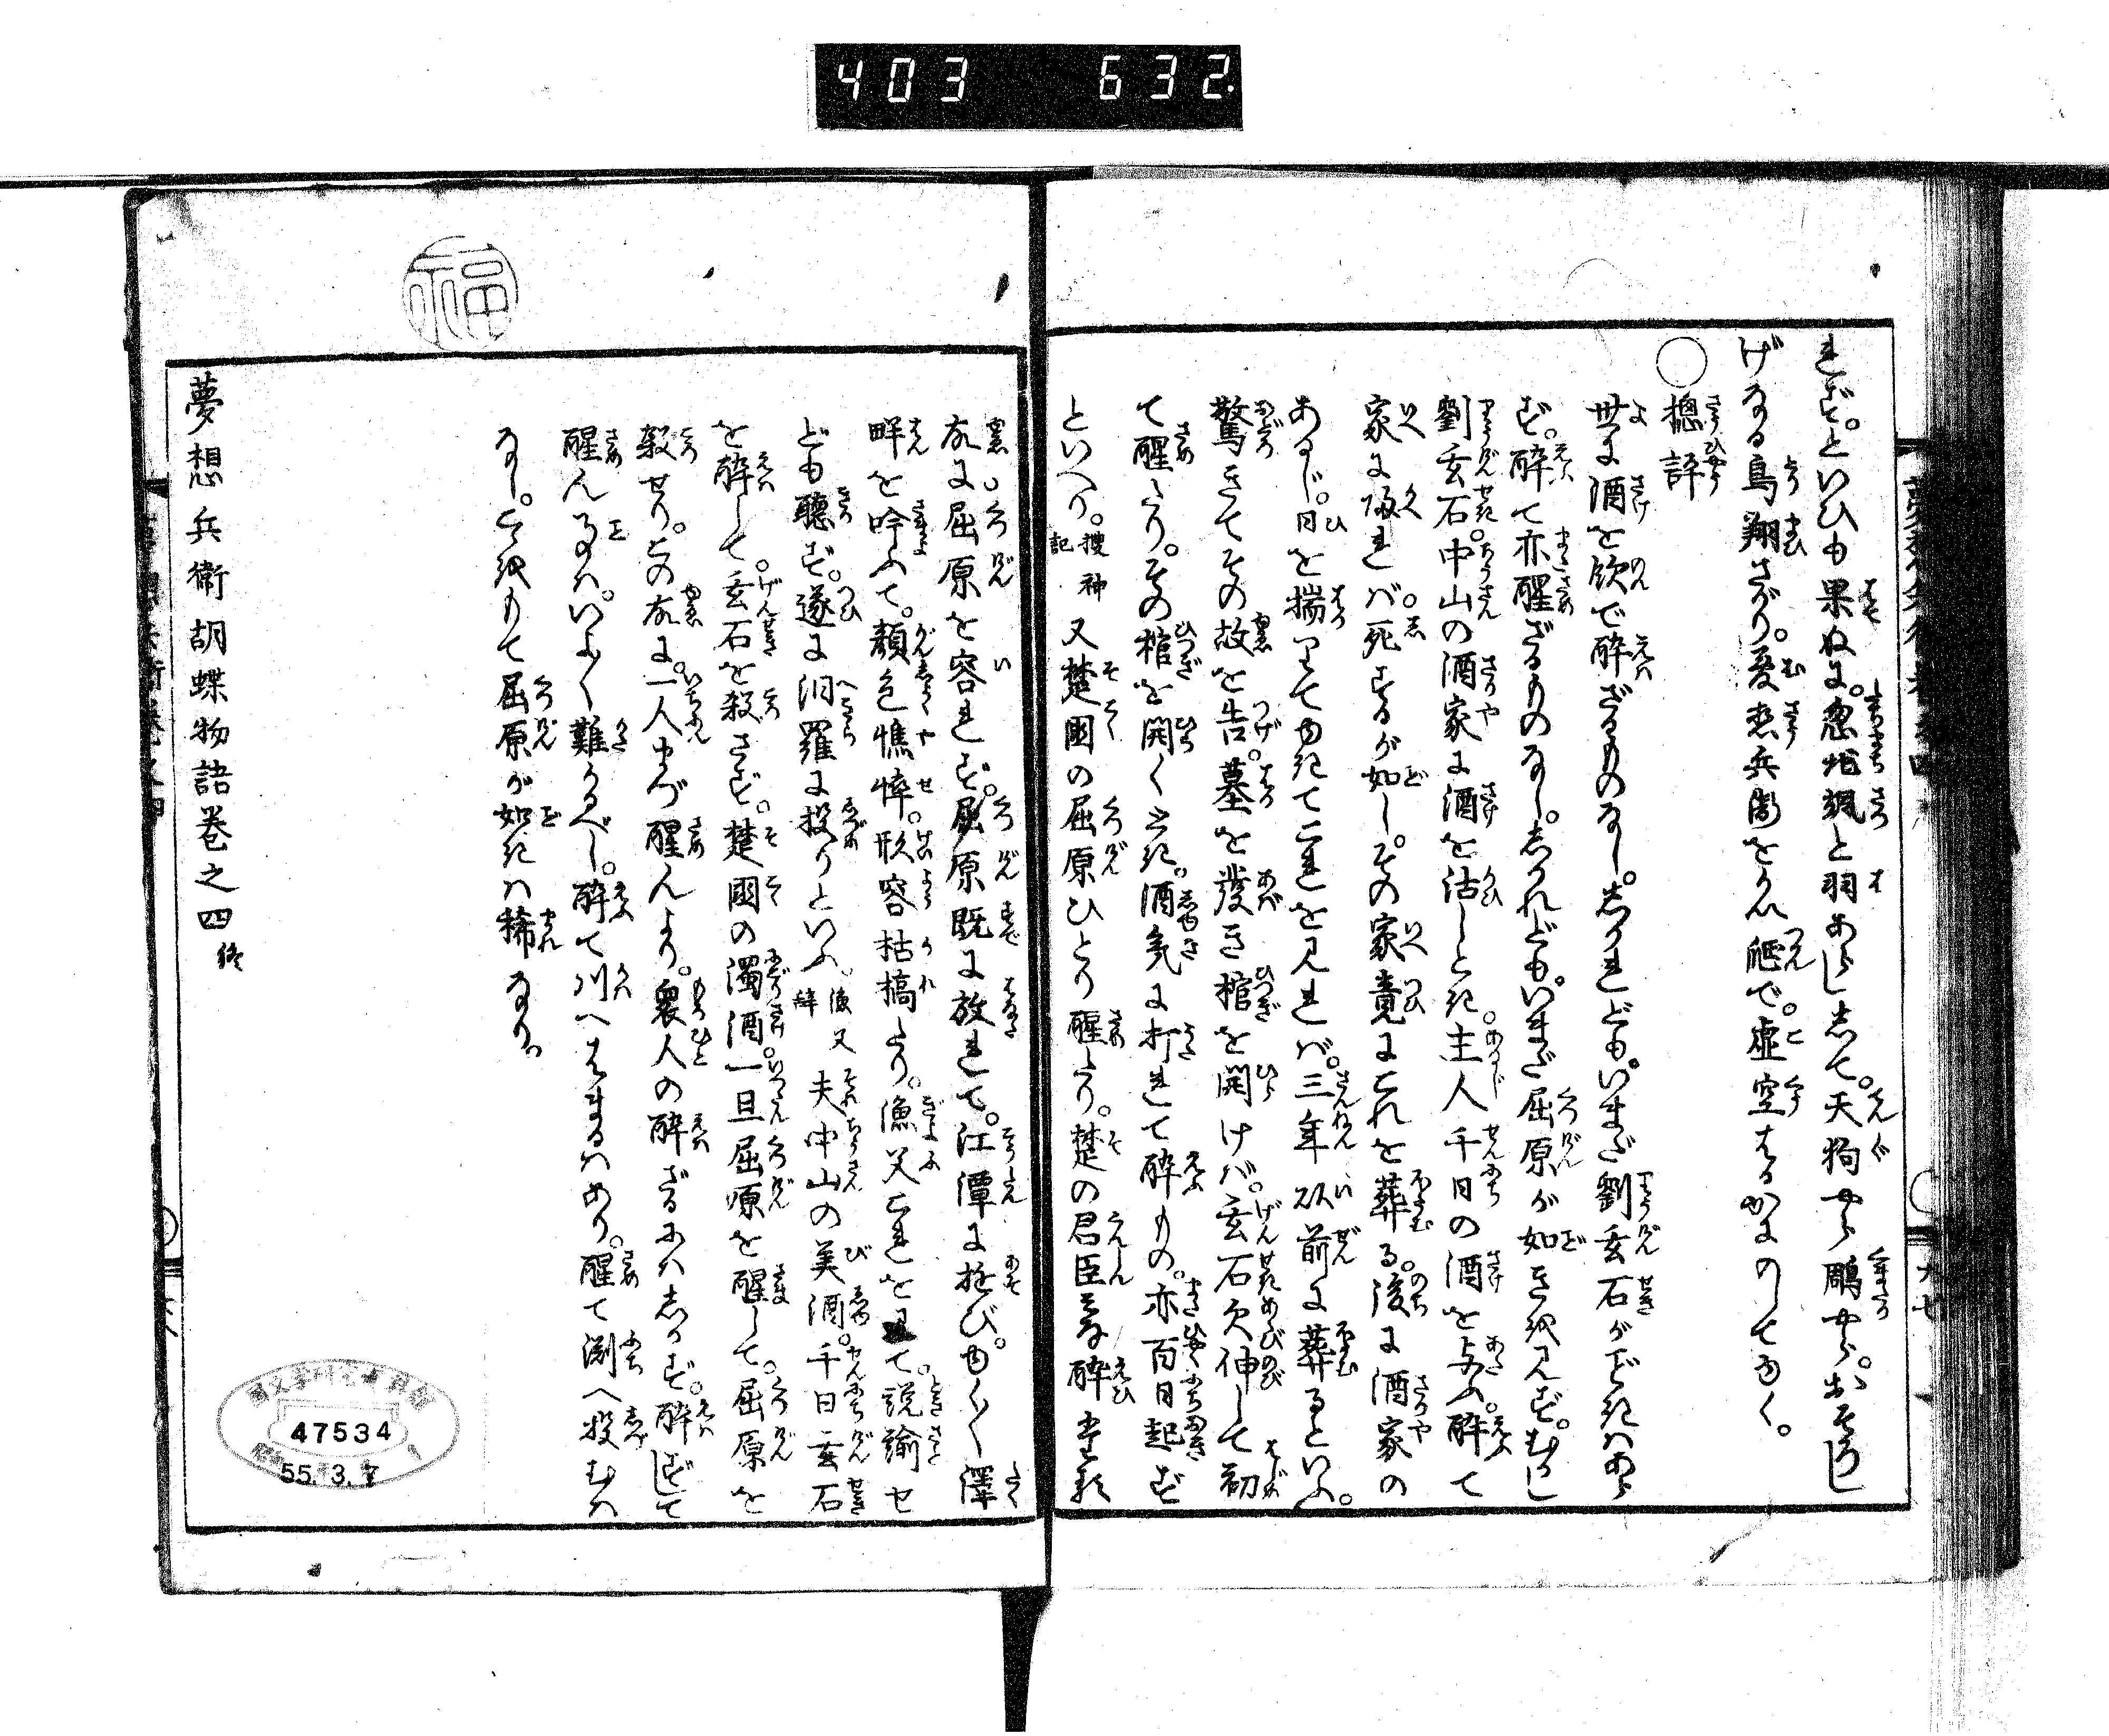 403 632.
れず。といひも果ぬに。忽地颯と羽あらしして。天狗やら鵰やら。おそろし
げなる鳥翔さがり。夢想兵衛をかい爴で。虚空はるかにのしてゆく。
○摠評
世に酒を飲で酔ざるものなし。しかれども。いまだ劉玄石がごときはあら
ず。酔て亦醒ざるものなし。しかれども。いまだ屈原が如きを見ず。むかし
劉玄石。中山の酒家に酒を沽しとき。主人千日の酒を与ふ。酔て
家に帰れば。死するが如し。その家竟にこれを葬る。後に酒家の
あるじ。日を揣りてゆきてこれを見れば。三年以前に葬るといふ。
驚きてその故を告。墓を發き棺を開けば。玄石欠伸して初
て醒たり。その棺を開くとき。酒気に打れて酔もの。亦百日起ず
といへり。捜神記 又楚國の屈原ひとり醒たり。楚の君臣みな酔
故に屈原を容れず。屈原既に放れて。江潭に遊び。ゆく〳〵澤
畔を吟ふて。顔色憔悴。形容枯槁たり。漁父これを見て。説諭せ
ども聴ず。遂に汨羅に投りといふ。漁父辞 又夫中山の美酒。千日玄石
を酔して。玄石を殺さず。楚國の濁酒。一旦屈原を醒して。屈原を
殺せり。この故に。一人まづ醒んより。衆人の酔ざるにはしかず。酔ずして
醒ん事は。いよ〳〵難かるべし。酔て川へはまるはあり。醒て渕へ投むは
なし。こゝをもて屈原が如きは稀なり。
夢想兵衛胡蝶物語巻之四終
福
47534
55.3.